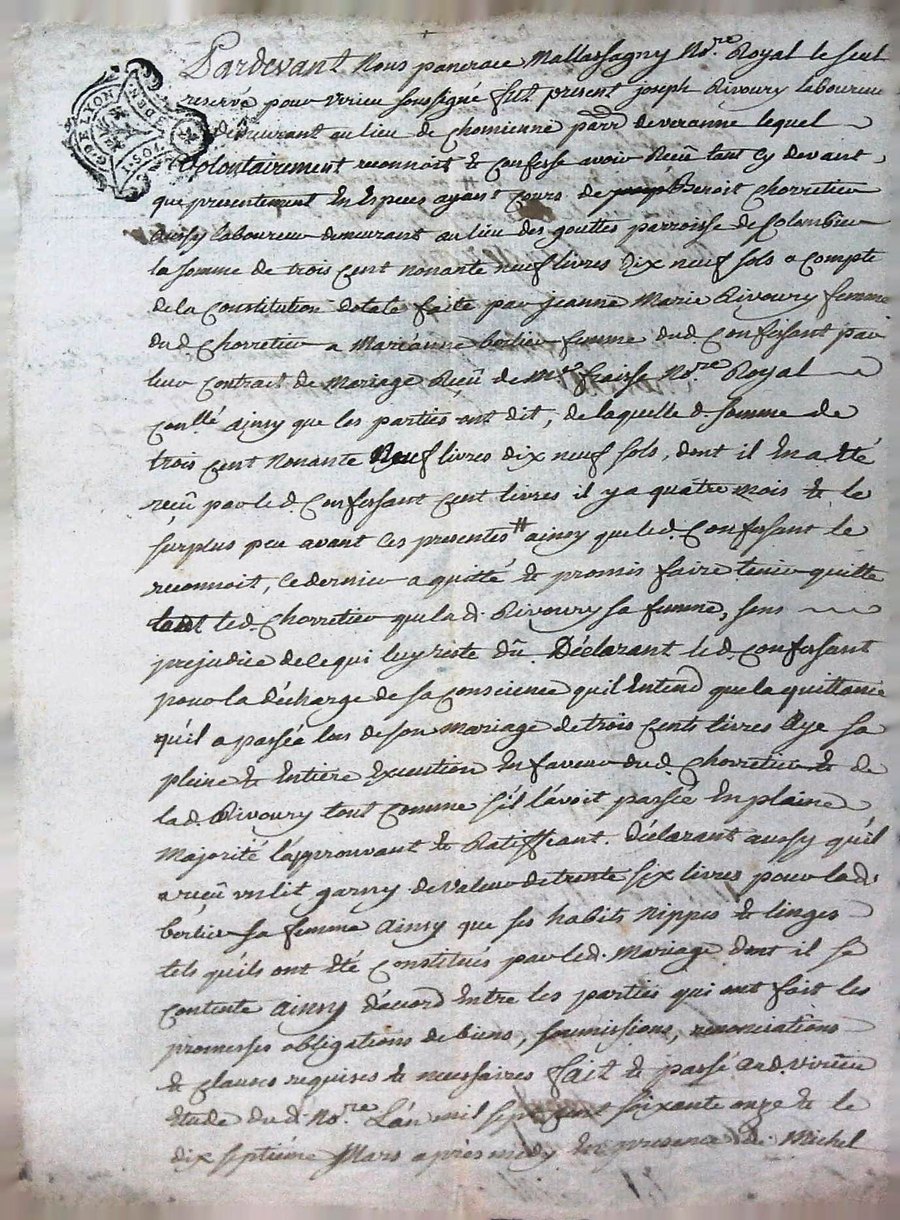 G. DE LYON
DEN.
1.SOL
Pardevant Nous pancrace Mallassagny No.re Royal le seul
reservé pour virieu soussigné fut present joseph Rivoury laboureur
demeurant au lieu de Chomienne parr. de veranne lequel
Volontairement reconnoit & confesse avoir Recû tant cy devant
que presentement En Especes ayant Cours de Benoit Chorretier
Aussy laboureur demeurant au lieu des gouttes parroisse de Colombier
la somme de trois Cent nonante neuf livres dix neuf sols a compte
de la Constitution dotale faite par jeanne Marie Rivoury femme
dud. Chorretier a Marianne berlier femme dud. Confessant par
leur Contract de Mariage Recû de Me No.re Royal
con.llé Ainsy que les parties ont dit, de laquelle d. somme de
trois Cent Nonante Neuf livres dix neuf sols, dont il En a Eté
recû par led. Confessant Cent livres il y a quatre mois & le
surplus peu avant Ces presentes # ainsy que led. Confessant le
reconnoit, Ce dernier a quitté & promis faire tenir quitte
tant led. Chorretier que lad. Rivoury sa femme, sans
prejudice de Ce qui luy reste dû. Déclarant led. Confessant
pour la décharge de sa Conscience qu'il Entend que la quittance
qu'il a passée lors de son Mariage de trois Cents livres Aye sa
pleine & Entiere Execution En faveur dud. Chorretier & de
lad. Rivoury tout Comme s'il l'avoit passée En plaine
Majorité l'approuvant & Ratiffiant. Déclarant aussy qu'il
a recû un lit garny de valeur de trente six livres pour lad.
berlier sa femme Ainsy que ses habits nippes & linges
tels qu'ils ont été Constitués par led. Mariage dont il se
Contente Ainsy d'acord Entre les parties qui ont fait les
promesses obligations de biens, soumissions, renonciations
& clauses requises & necessaires fait & passé aud. Virieu
Etude dud. No.re L'an mil sept Cent soixante onze & le
dix septième Mars après midy En presence de Michel